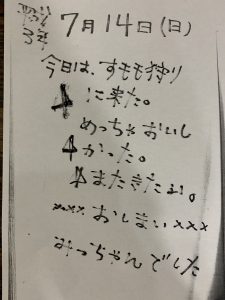 平成
3年
7月14日(日)
今日は、すモモ狩り
に来た。
めっちゃおいし
かった。
またきたよ。
××× おしまい ×××
みっちゃんでした